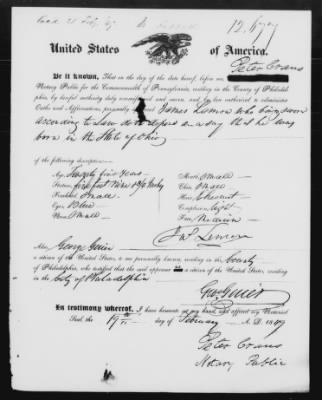 12,677
United States of America.
Peter Evans
Be it known, That on the date hereof, before me,
Notary Public for the Commonwealth of Pennsylvania, residing in the County of Philadelphia,
by lawful authority duly commissioned and sworn, and by law authorized to administer
Oaths and Affirmations, personally James Lemon who being sworn
according to Law doth depose and say that he was
born in the State of Ohio
of the following description—
Age Twenty five Years
Stature five feet Nine
Forehead Small
Eyes Blue
Nose Small
Mouth Small
Chin Small
Hair
Complexion light
Face
Jas Lemon
Also George
a citizen of the United States, to me personally known, residing in the County
of Philadelphia, who testified that the said is a citizen of the United States, residing
in the City of Philadelphia
In testimony whereof, I have hereunto set my hand, and affixed my Notarial
Seal the 19th day of February A. D. 1849
Peter Evans
Notary Public